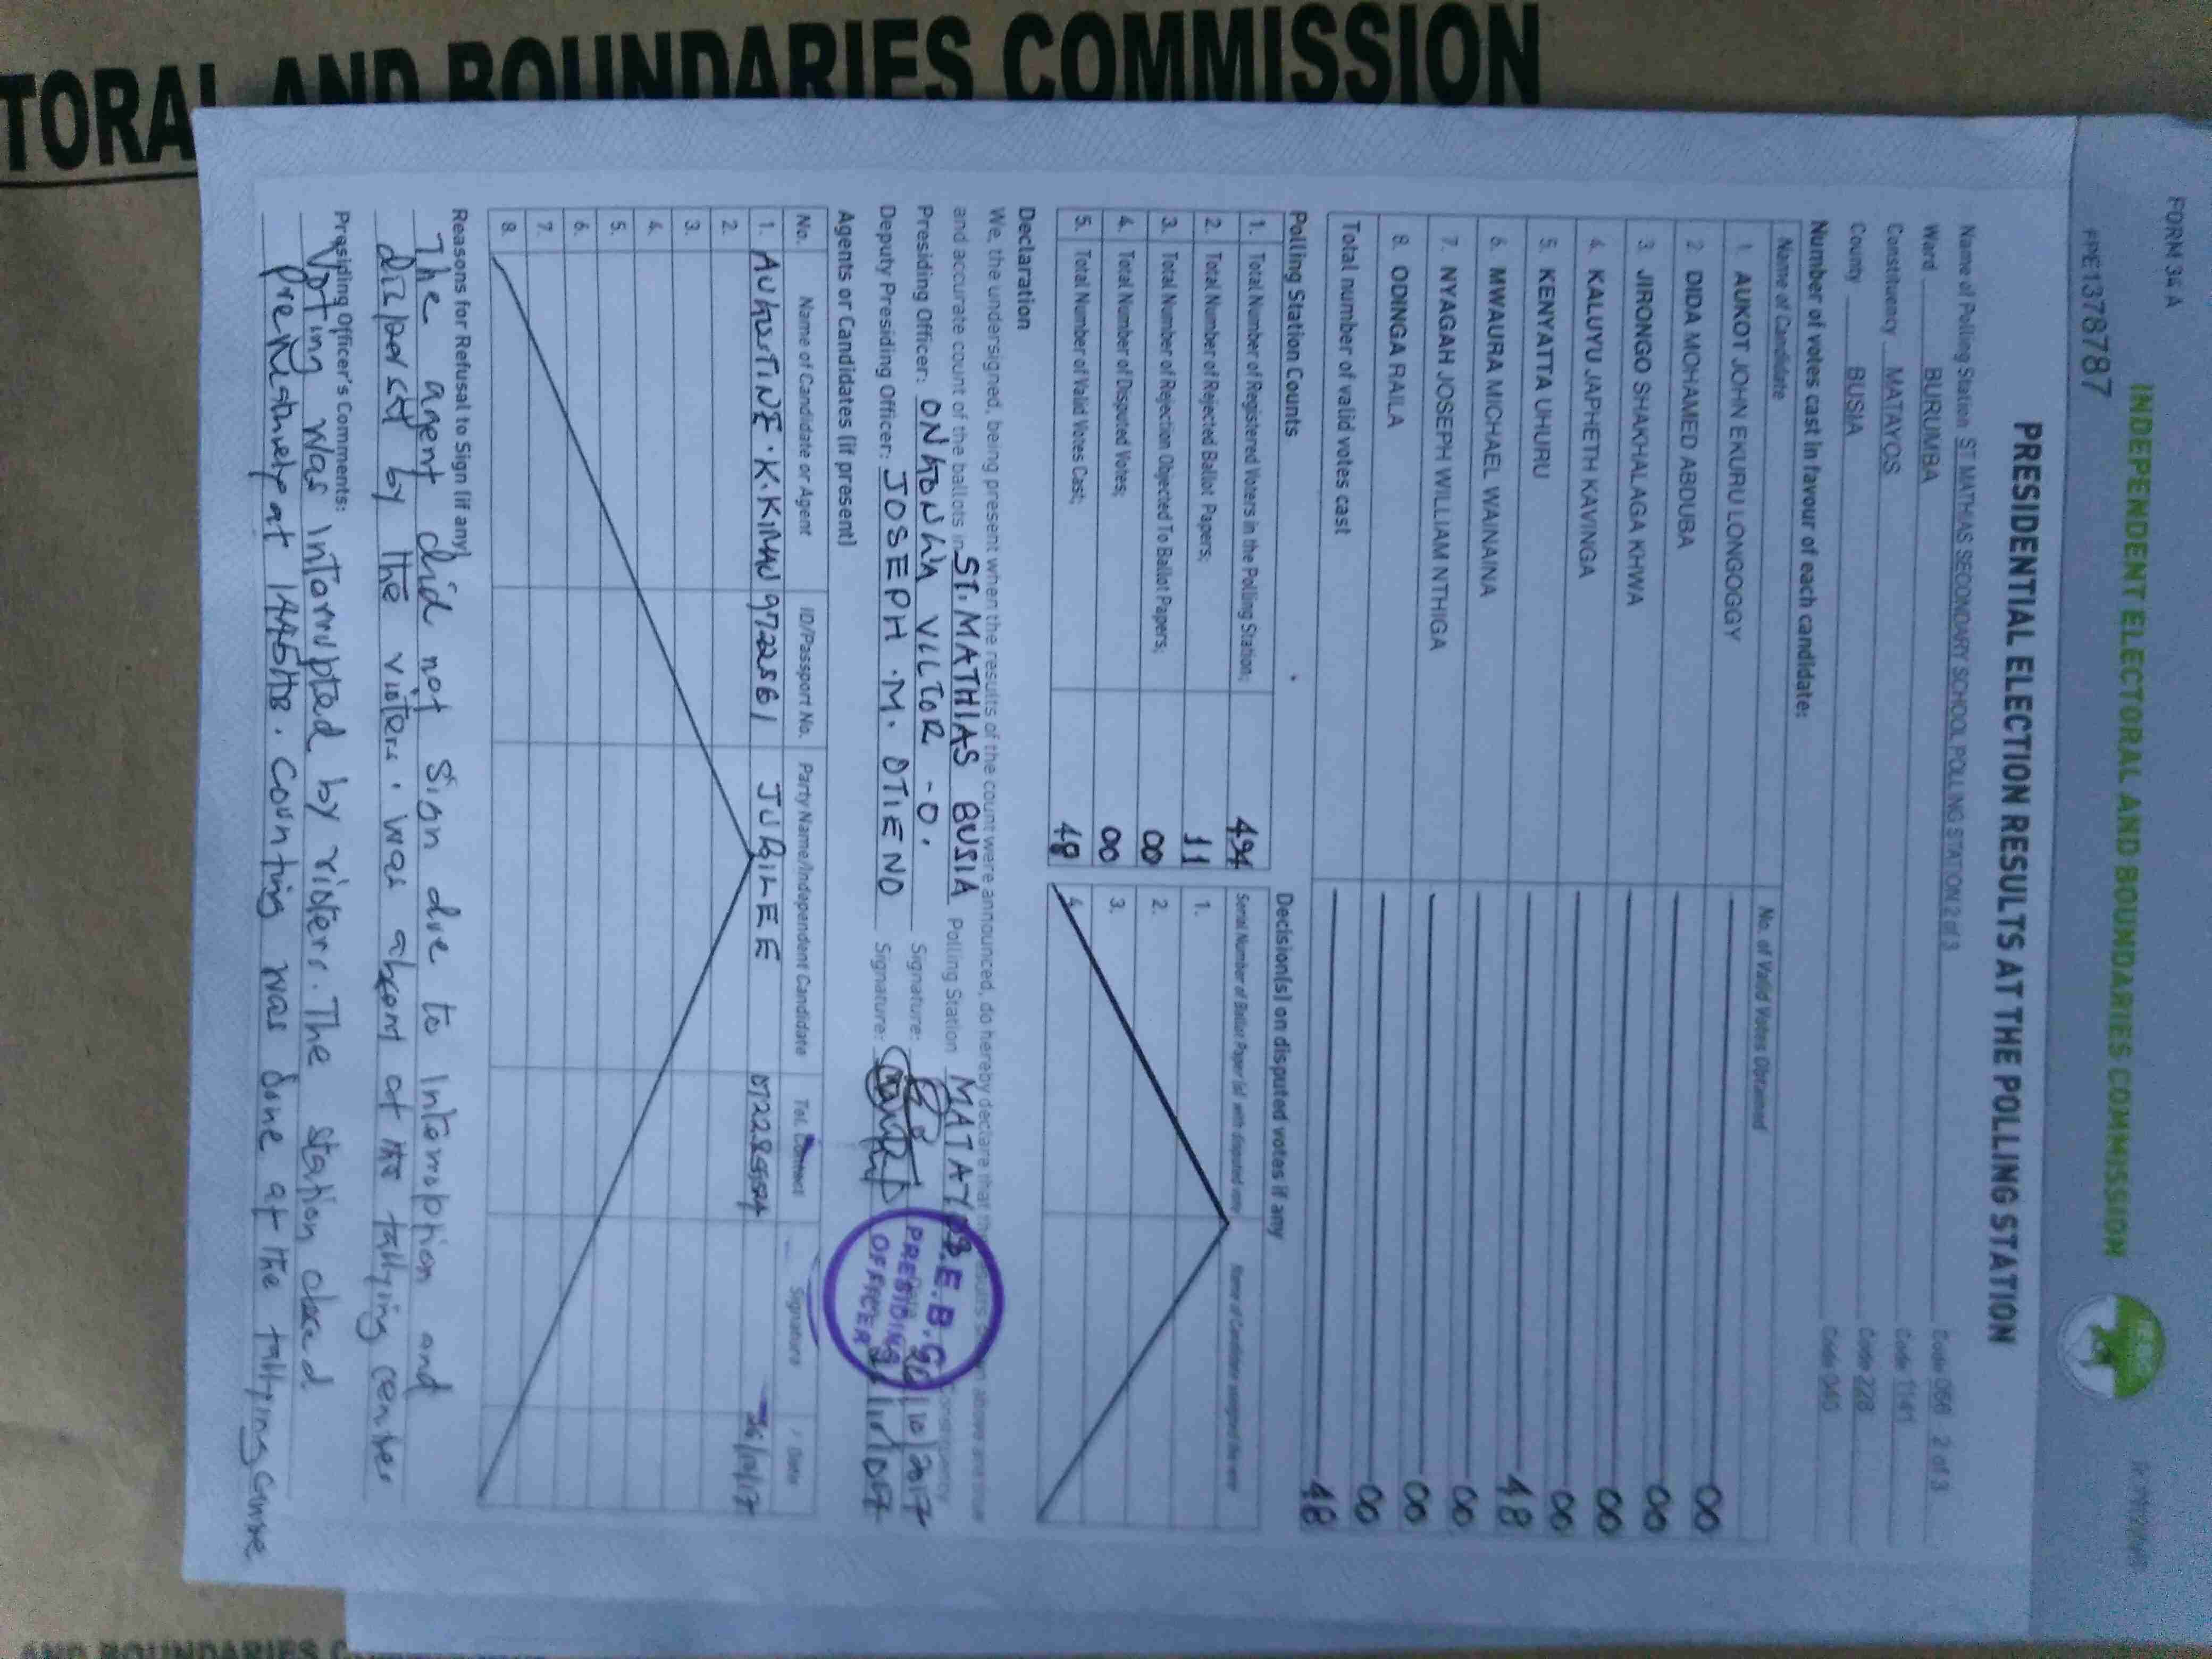 TORAL AND BOUNDARIES COMMISSION
FORM 34 A
PPE1378787
INDEPENDENT ELECTORAL AND BOUNDARIES COMMISSION
IEBC
PRESIDENTIAL ELECTION RESULTS AT THE POLLING STATION
Name of Polling Station ST MATHIAS SECONDARY SCHOOL POLLING STATION 2 of 3 Code 066 2 of 3
Ward BURUMBA Code 1141
Constituency MATAYOS Code 228
County BUSIA Code 040
Number of votes cast in favour of each candidate:
Name of Candidate No. of Valid Votes Obtained
1. AUKOT JOHN EKURU LONGOGGY 00
2. DIDA MOHAMED ABDUBA 00
3. JIRONGO SHAKHALAGA KHWA 00
4. KALUYU JAPHETH KAVINGA 00
5. KENYATTA UHURU 48
6. MWAURA MICHAEL WAINAINA 00
7. NYAGAH JOSEPH WILLIAM NTHIGA 00
8. ODINGA RAILA 00
Total number of valid votes cast 48
Polling Station Counts
1. Total Number of Registered Voters in the Polling Station; 494
2. Total Number of Rejected Ballot Papers; 11
3. Total Number of Rejection Objected To Ballot Papers; 00
4. Total Number of Disputed Votes; 00
5. Total Number of Valid Votes Cast; 48
Decision(s) on disputed votes if any
Serial Number of Ballot Paper (s) with disputed vote Name of Candidate assigned the vote
1.
2.
3.
4.
Declaration
We, the undersigned, being present when the results of the count were announced, do hereby declare that the results shown above are true
and accurate count of the ballots in ST. MATHIAS BUSIA Polling Station MATAYOS Constituency
Presiding Officer: ONGONGA VICTOR - O. Signature: 26/10/2017
Deputy Presiding Officer: JOSEPH .M. OTIENO Signature:
I.E.B.C
PRESIDING
OFFICER
Agents or Candidates (if present)
No. Name of Candidate or Agent ID/Passport No. Party Name/Independent Candidate Tel. Contact Signature Date
1. AUGUSTINE .K. KIMANI 9722561 JUBILEE 26/10/17
2.
3.
4.
5.
6.
7.
8.
Reasons for Refusal to Sign (if any)
The agent did not sign due to Interruption and
dispersed by the rioters. was absent at the tallying center
Presiding Officer's Comments:
Voting was Interrupted by rioters. The station closed
prematurely at 1445Hrs. Counting was done at the tallying centre
AND BOUNDARIES C